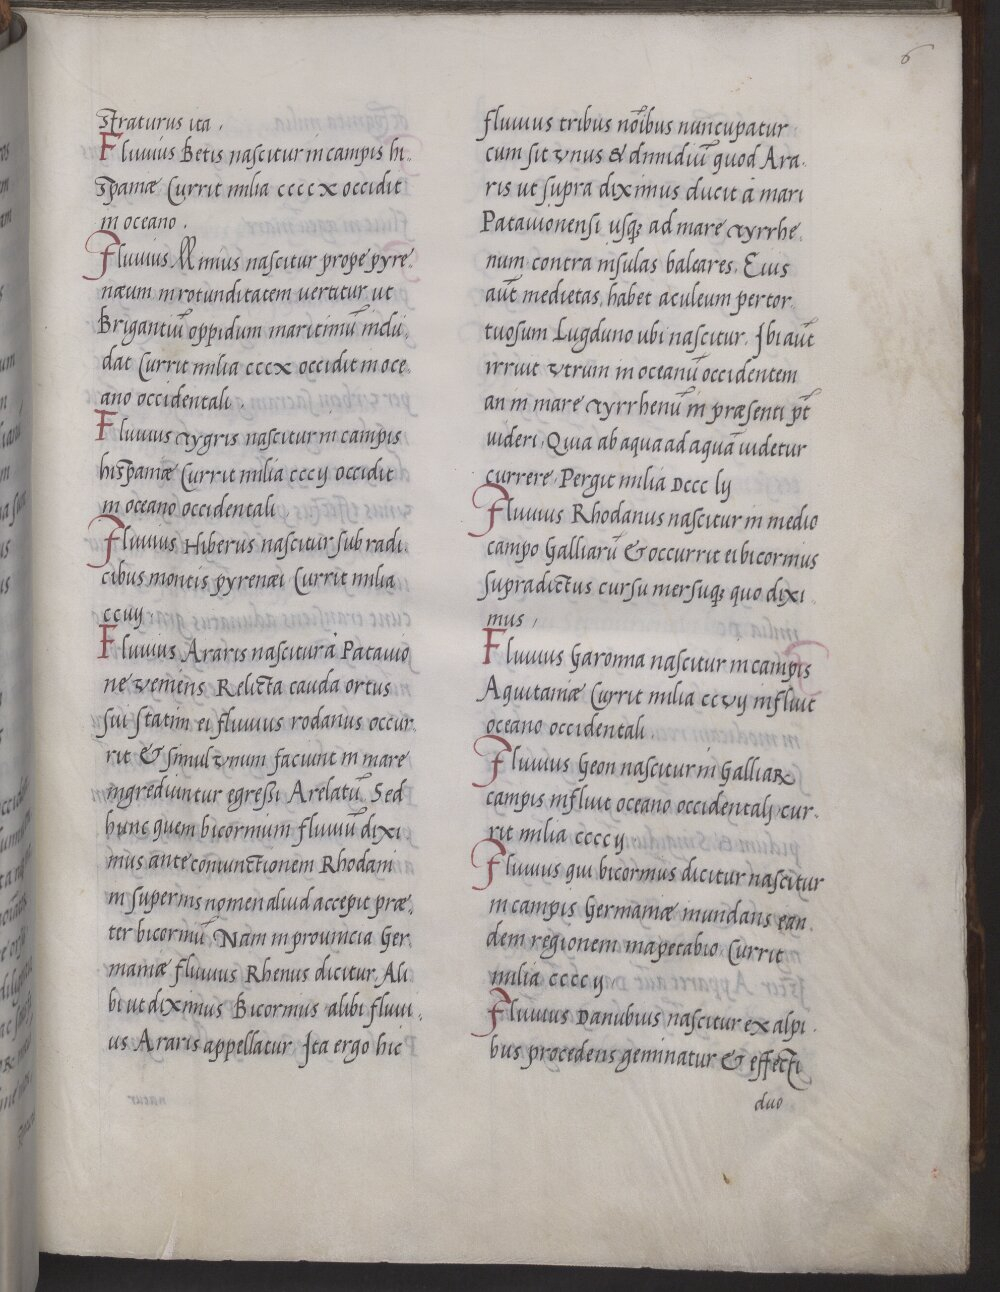 6
straturus ita.
Fluuius Betis nascitur in campis hi-
spaniæ Currit milia ccccx occidit
in oceano.
Fluuius Minius nascitur prope pyre-
næum in rotunditatem uertitur ut
Brigantiũ oppidum maritimũ inclu-
dat Currit milia cccx occidit in oce-
ano occidentali
Fluuius tygris nascitur in campis
hispaniæ Currit milia cccij occidit
in oceano occidentali
Fluuius Hiberus nascitur sub radi-
cibus montis pyrenæi Currit milia
cciiij
Fluuius Araris nascitur à Patauio
ne veniens Relicta cauda ortus
sui statim ei fluuius rodanus occur-
rit & simul vnum faciunt in mare
ingrediuntur egressi Arelatũ Sed
hunc quem bicornium fluuiũ dixi-
mus ante coniunctionem Rhodani
in superius nomen aliud accepit præ-
ter bicorniũ, Nam in prouincia Ger-
maniæ fluuius Rhenus dicitur Ali-
bi ut diximus Bicornius alibi fluui-
us Araris appellatur Ita ergo hic
fluuius tribus nõibus nuncupatur
cum sit vnus & dimidiũ quod Ara-
ris ut supra diximus ducit à mari
Patauionensi usq; ad mare tyrrhe-
num contra insulas baleares. Eius
aũt medietas, habet aculeum pertor-
tuosum Lugduno ubi nascitur. Ibi aũt
irruit vtrum in oceanũ occidentem
an in mare tyrrhenũ in præsenti pt̃
uideri, Quia ab aqua ad aquã uidetur
currere, Pergit milia DCCC lij
Fluuius Rhodanus nascitur in medio
campo Galliarũ & occurrit ei bicornius
supradictus cursu mersuq; quo dixi-
mus,
Fluuius Garonna nascitur in campis
Aquitaniæ Currit milia ccvij influit
oceano occidentali.
Fluuius Geon nascitur in Galliaꝝ
campis influit oceano occidentali cur-
rit milia ccccij
Fluuius qui bicornius dicitur nascitur
in campis Germaniæ inundans ean-
dem regionem mapetabio Currit
milia ccccij
Fluuius Danubius nascitur ex alpi-
bus procedens geminatur & effecti
duo